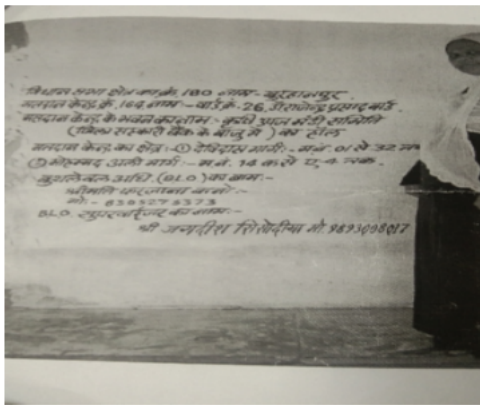 विधान सभा क्षेत्र का क्रं. 180 नाम- बुरहानपुर.
मतदान केन्द्र क्रं. 164 नाम :- वार्ड क्रं- 26, डॉ राजेन्द्र प्रसाद वार्ड.
मतदान केन्द्र के भवन का नाम :- कृषि उपज मंडी समिति
(जिला सहकारी बैंक के बाजू में) का हॉल
मतदान केन्द्र का क्षेत्र :- ① देविदास मार्ग :- म.नं. 01 से 32 तक
② मोहम्मद अली मार्ग :- म.नं. 14 क से ए-4 तक.
बुथ लेवल अधि. (BLO) का नाम :-
श्रीमति फरजाना बानो :-
मो. -
BLO. सुपरवाईजर का नाम :-
श्री जगदीश सिसोदीया मो.